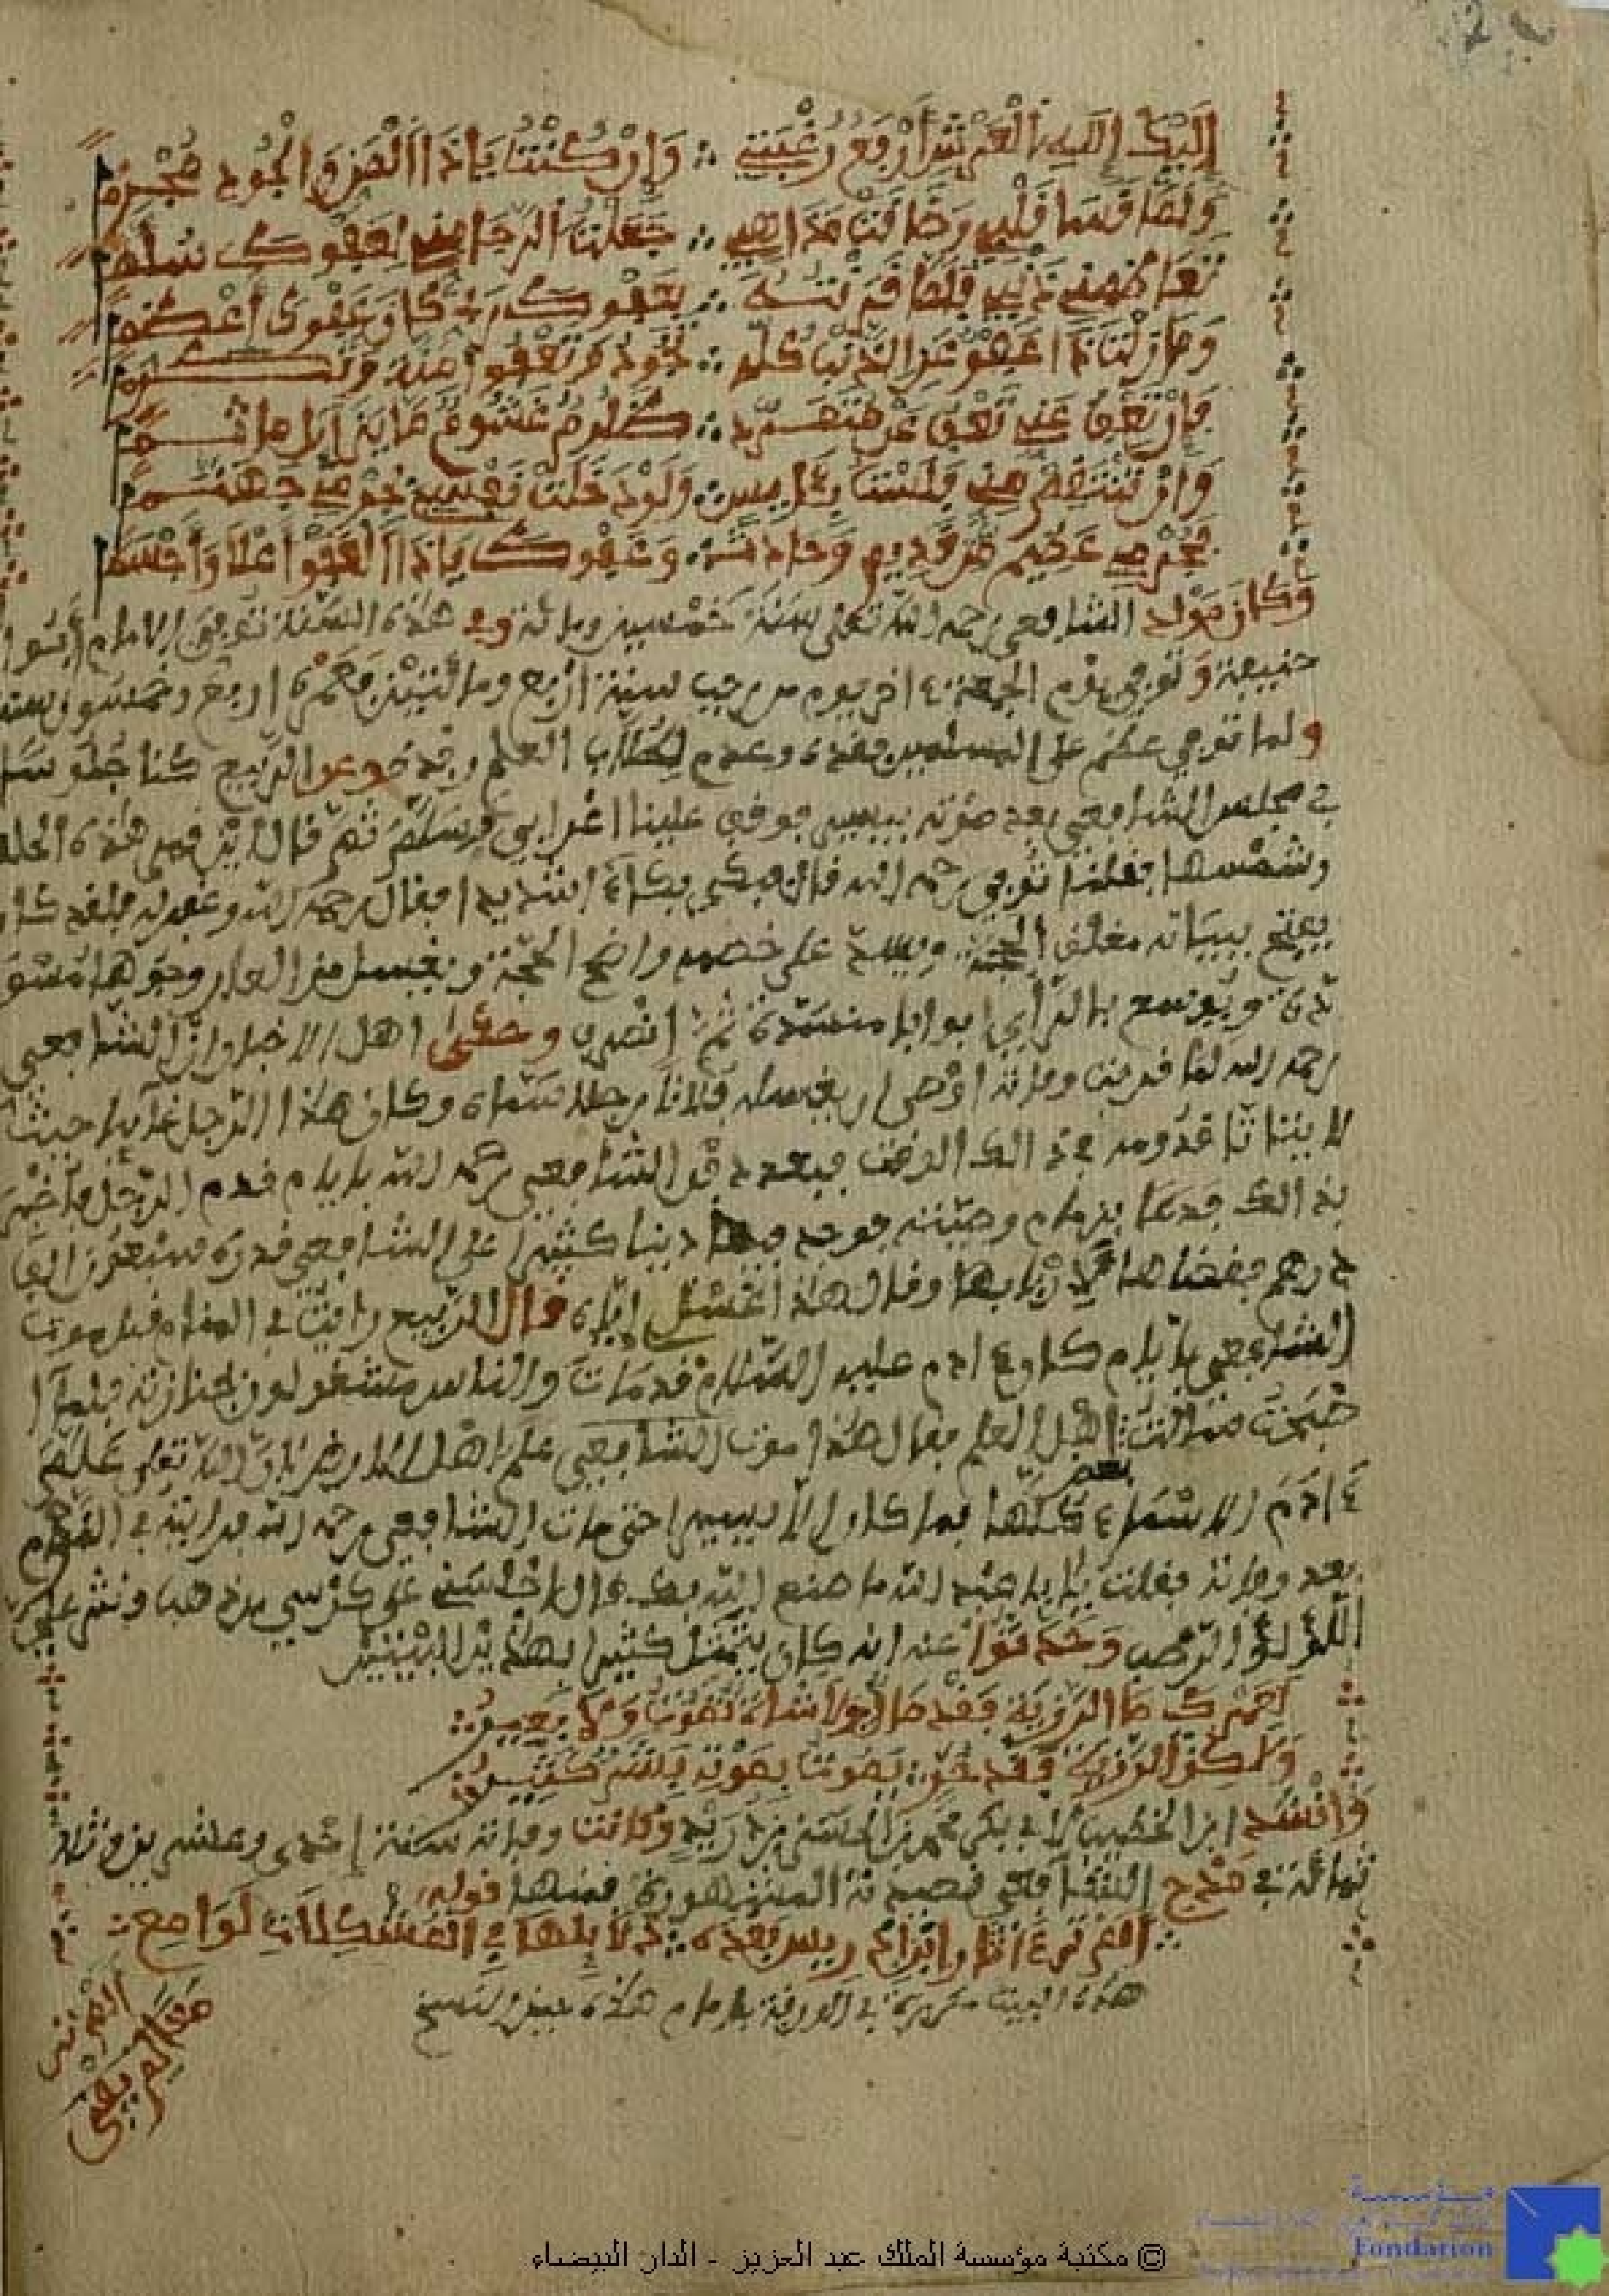 إليك إله العرش أرفع رغبتي ∴ وإن كنت يا ذا المن والجود مجرما
ولما قسا قلبي وضاقت مذاهبي ∴ جعلت الرجا مني لعفوك سلما
تعاظمني ذنبي فلما قرنته ∴ بعفوك ربي كان عفوك أعظما
وما زلت ذا عفو عن الذنب كله ∴ تجود وتعفو منة وتكرما
فإن تعف عني تعف عن متمرد ∴ ظلوم غشوم ما يزايل ماثما
وإن تنتقم مني فلست بآيس ∴ ولو دخلت نفسي بجرمي جهنما
فجرمي عظيم من قديم وحادث ∴ وعفوك يا ذا العفو أعلا وأجسما
وكان مولد الشافعي رحمه الله تعلى سنة خمسين ومائة وفي هذه السنة توفي الإمام أبوا
حنيفة وتوفي يوم الجمعة ءاخر يوم من رجب سنة أربع ومائتين وعمره أربع وخمسون سنة
ولما توفي عظم على المسلمين فقده وعدم لطلاب العلم رفده وعن الربيع كنا جلوسا
في مجلس الشافعي بعد موته بيسير فوقف علينا أعرابي فسلم ثم قال أين قمر هذه الحلقة
وشمسها فقلنا توفي رحمه الله قال فبكى بكاء شديدا فقال رحمه الله وغفر له فلقد كان
يفتح ببيانه مغلق الحجة ويسد على خصمه واضح المحجة ويغسل من العار وجوها مسو
دة ويوسع بالرأي أبوابا منسدة ثم انصرف وحكى أهل الأخبار أن الشافعي
رحمه الله لما قربت وفاته أوصى أن يغسله فلانا رجلا سماه وكان هذا الرجل غائبا حيث
لا يتأتا قدومه في ذالك الوقت فبعد دفن الشافعي رحمه الله بأيام قدم الرجل فأخبر
بذالك فدعا بزمام وصيته فوجد فيها دينا كثيرا على الشافعي قدره سبعون ألف
درهم فقضاها لأربابها وقال هذا غسلي إياه قال الربيع رأيت في المنام قبل موت
الشافعي بأيام كأن ءادم عليه السلام قد مات والناس مشغولون بجنازته فلما
أصبحت سألت أهل العلم فقال هذا موت الشافعي علم أهل الأرض لأن الله تعلى علم
ءادم الأسماء كلها فما كان إلا يسيرا حتى مات الشافعي رحمه الله فرأيته في النوم
بعد وفاته فقلت يا أبا عبد الله ما صنع الله بك قال أجلسني على كرسي من ذهب ونثر علي
اللؤلؤ الرطب وحدثوا عنه أنه كان يتمثل كثيرا بهذين البيتين
لعمرك ما الرزية فقد مال ولا شاة تموت ولا بعير
ولاكن الرزية فقد حر ∴ يموت بموته بشر كثير
وأنشد ابن الخطيب لأبي بكر محمد بن الحسن بن دريد وكانت وفاته سنة إحدى وعشرين وثلا
ثمائة في مدح الشافعي قصيدته المشهورة فمنها قوله
ألم تر ءاثار ابن إدريس بعده ∴ دلائلها في المشكلات لوامع
هذه البيت في الورقة بالإمام هذه بعض النسخ
© مكتبة مؤسسة الملك عبد العزيز - الدار البيضاء
مؤسسة
Fondation